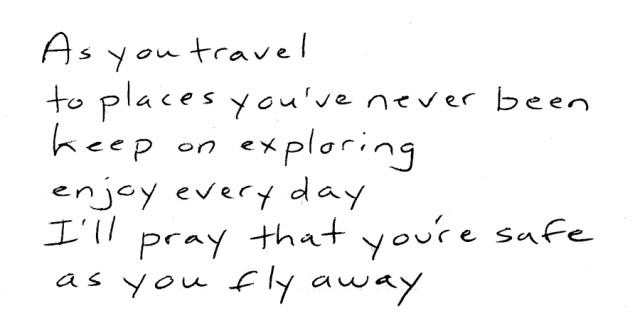 As you travel
to places you've never been
keep on exploring
enjoy every day
I'll pray that you're safe
as you fly away